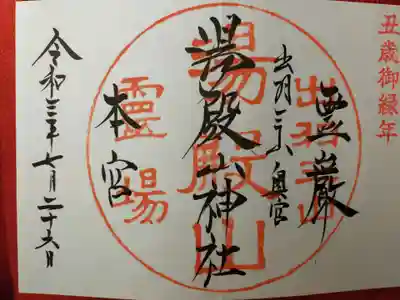 丑歳御縁年
霊巌
出羽三山奥宮
湯殿山神社
本宮
令和三年七月二十六日
出羽三山
湯殿山
靈場